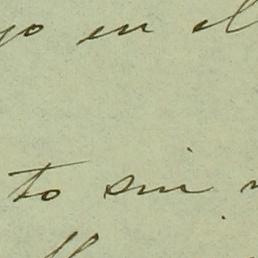 yo en el
to sin